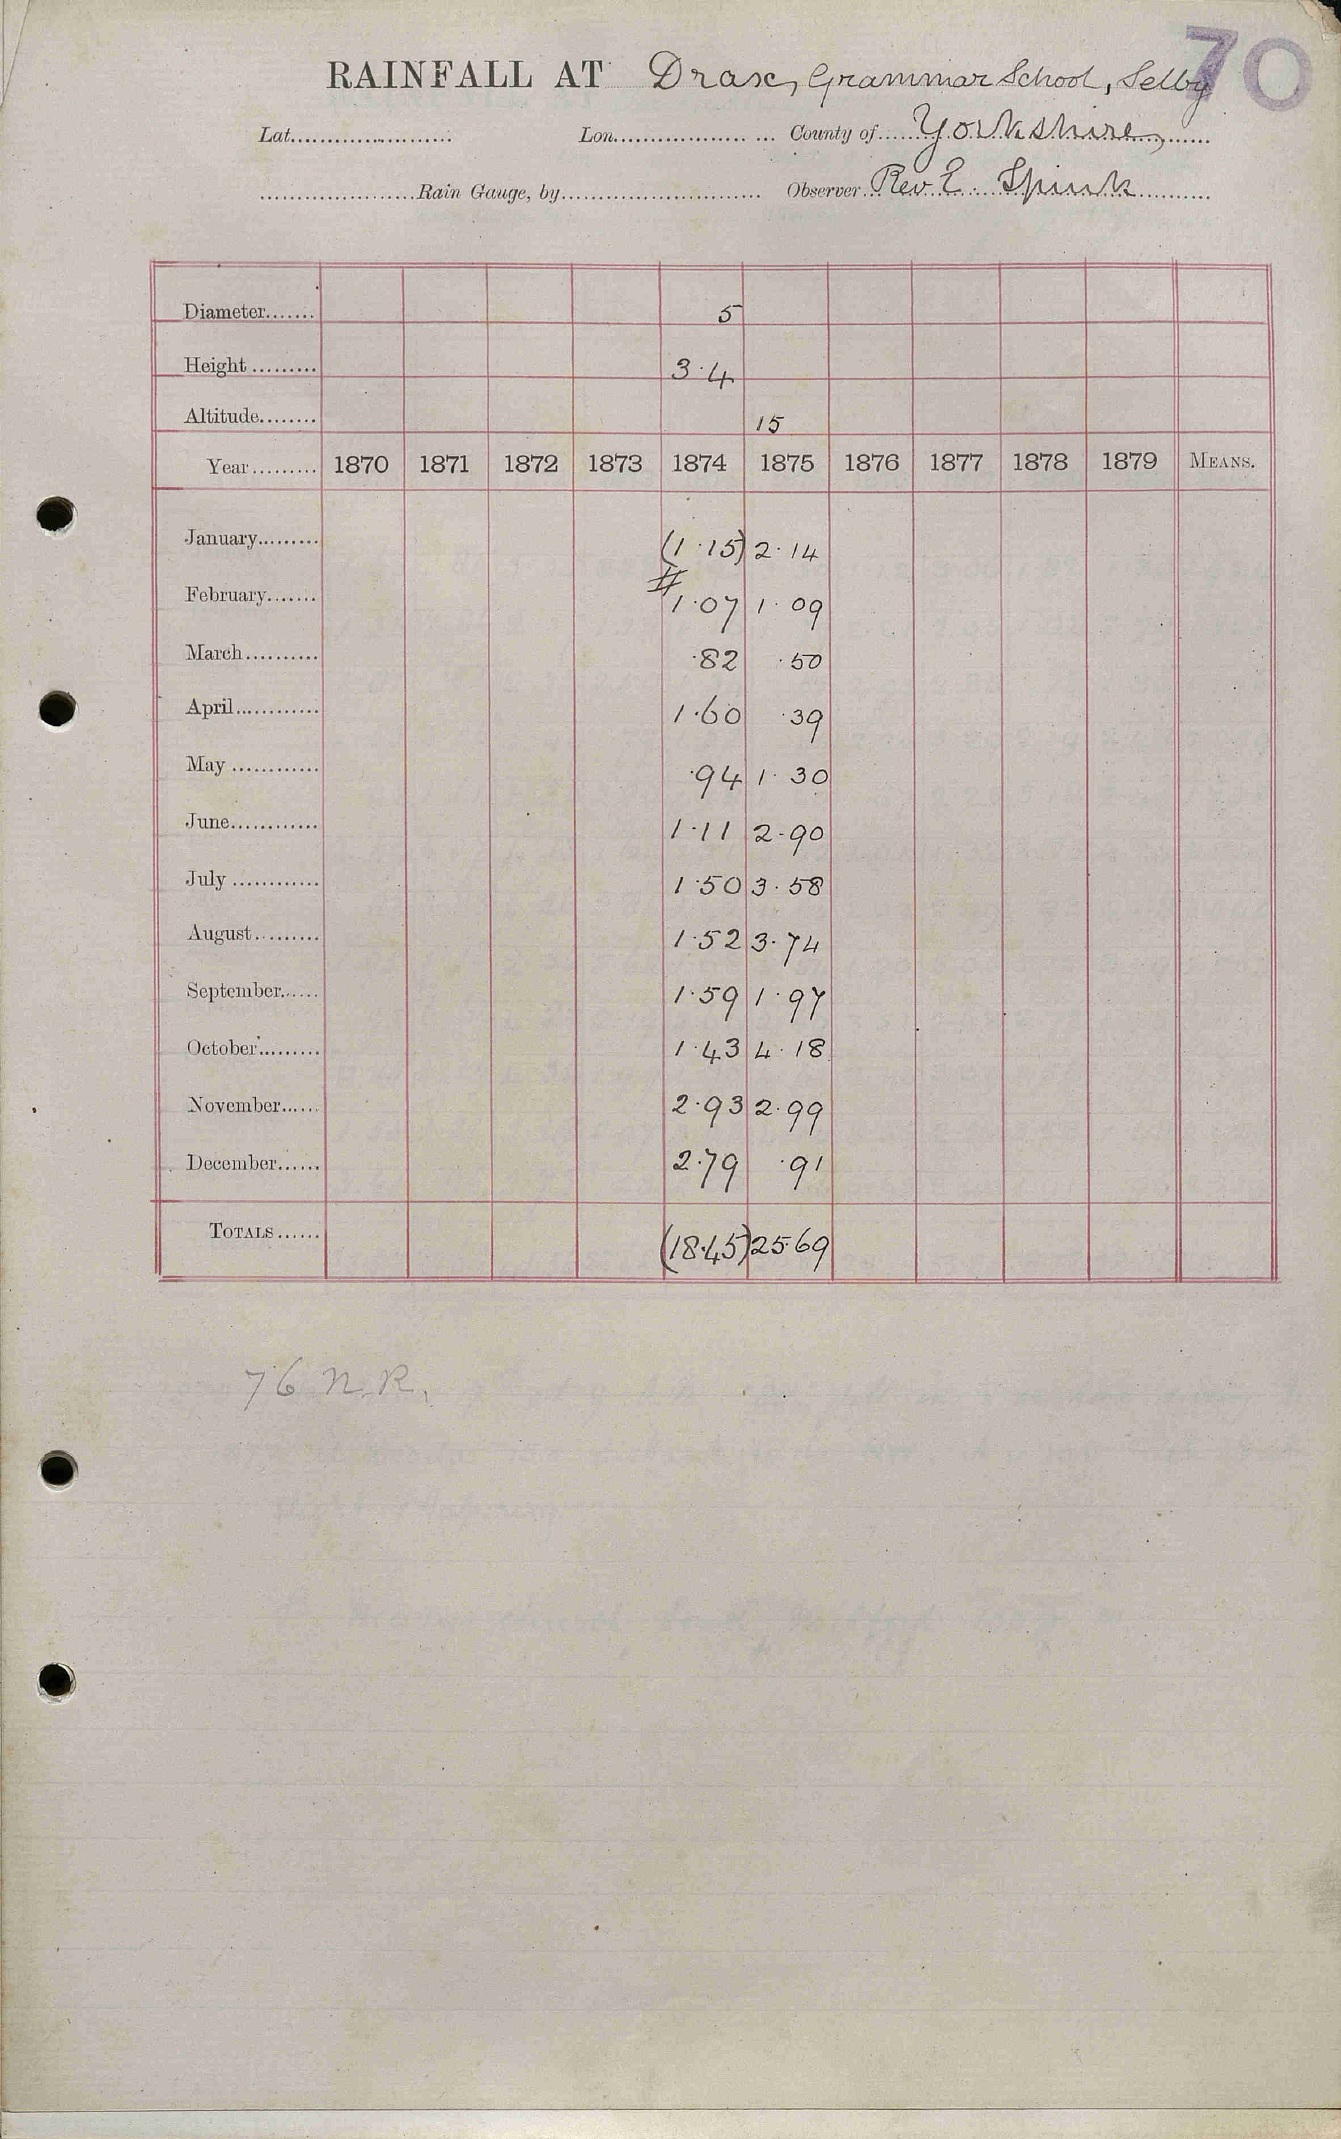 70
RAINFALL AT Drax, Grammar School, Selby
Lat. Lon. County of Yorkshire,
Rain Gauge, by Observer Rev. E. Spink
Diameter 5
Height 3.4
Altitude 15
Year 1870 1871 1872 1873 1874 1875 1876 1877 1878 1879 MEANS.
January (1.15) 2.14
#
February 1.07 1.09
March .82 .50
April 1.60 .39
May .94 1.30
June 1.11 2.90
July 1.50 3.58
August 1.52 3.74
September 1.59 1.97
October 1.43 4.18
November 2.93 2.99
December 2.79 .91
TOTALS (18.45) 25.69
76 N.R.